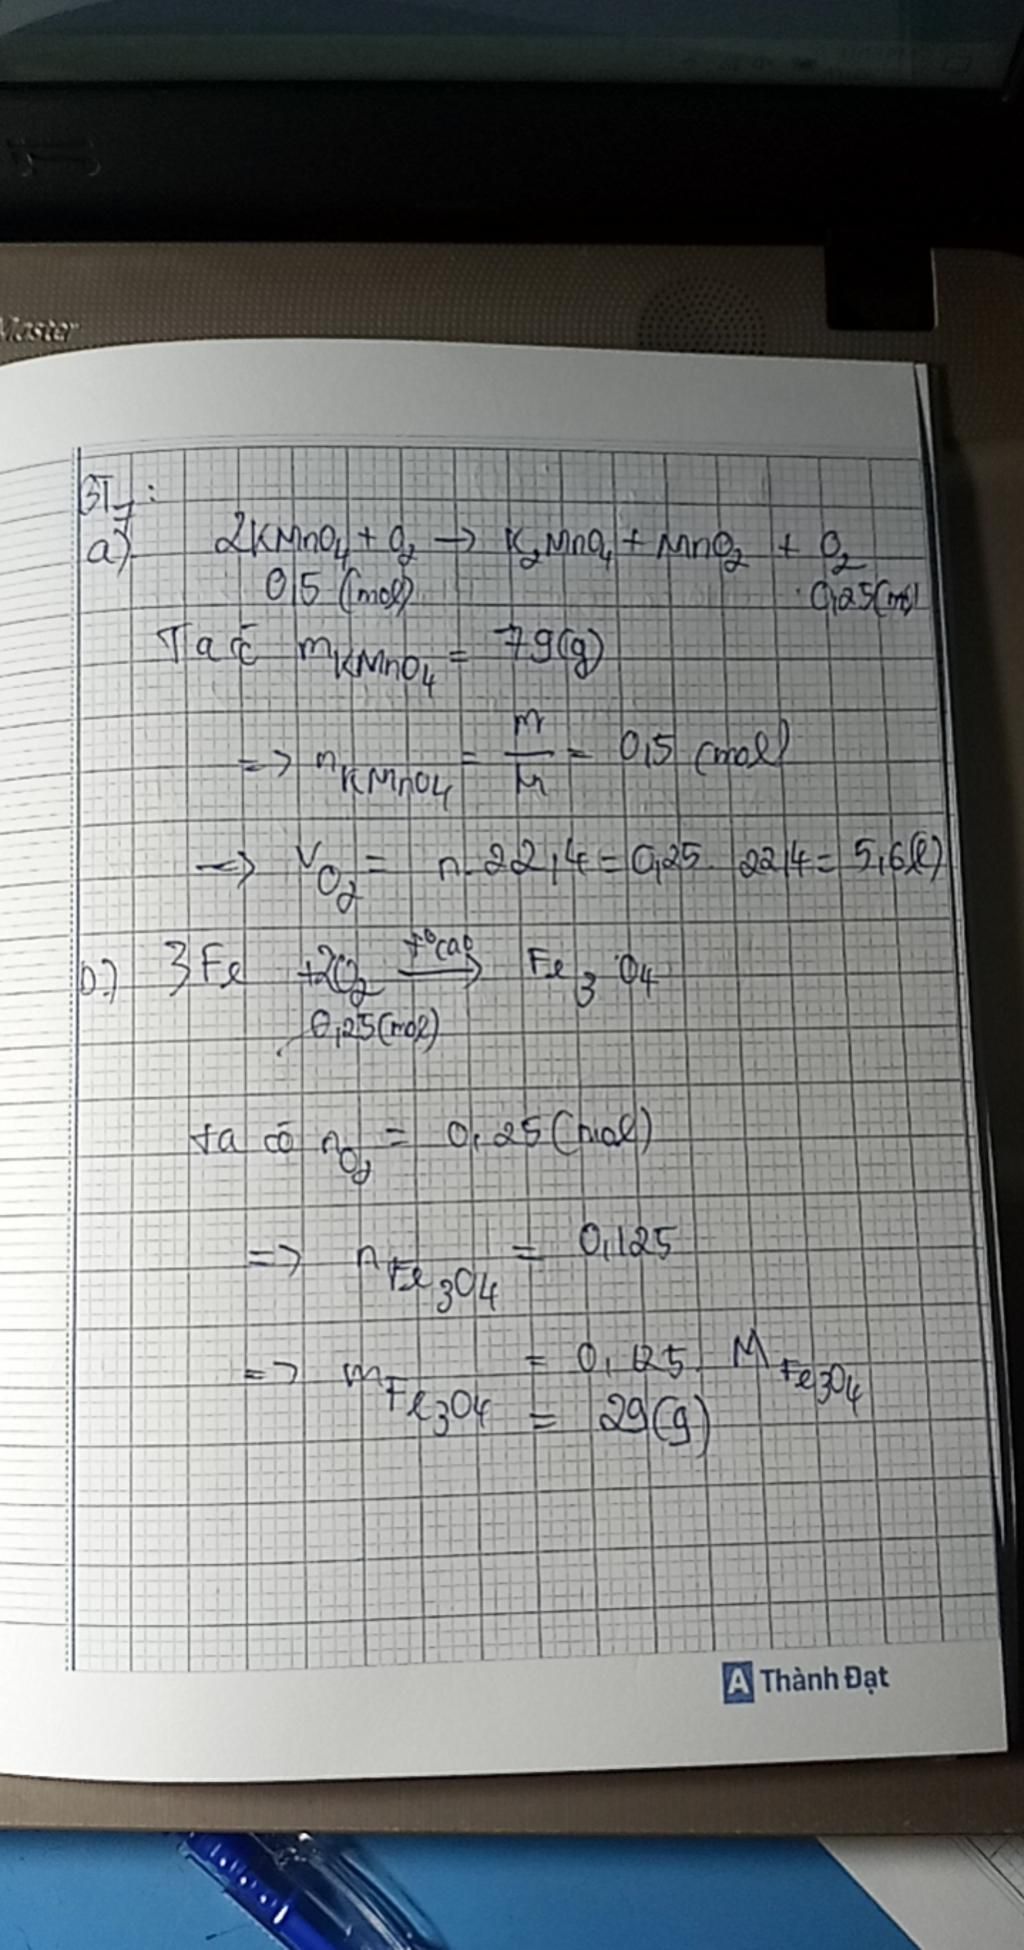 Master
BT7:
a) 2KMnO4 + O2 → K2MnO4 + MnO2 + O2
0,5 (mol) 0,25(mol)
Ta có mKMnO4 = 79(g)
=> nKMnO4 = m/M = 0,5 (mol)
=> VO2 = n. 22,4 = 0,25. 22,4 = 5,6(l)
b) 3Fe + 2O2 t°cao → Fe3O4
0,25(mol)
ta có nO2 = 0,25(mol)
=> nFe3O4 = 0,125
=> mFe3O4 = 0,125. MFe3O4
= 29(g)
A Thành Đạt